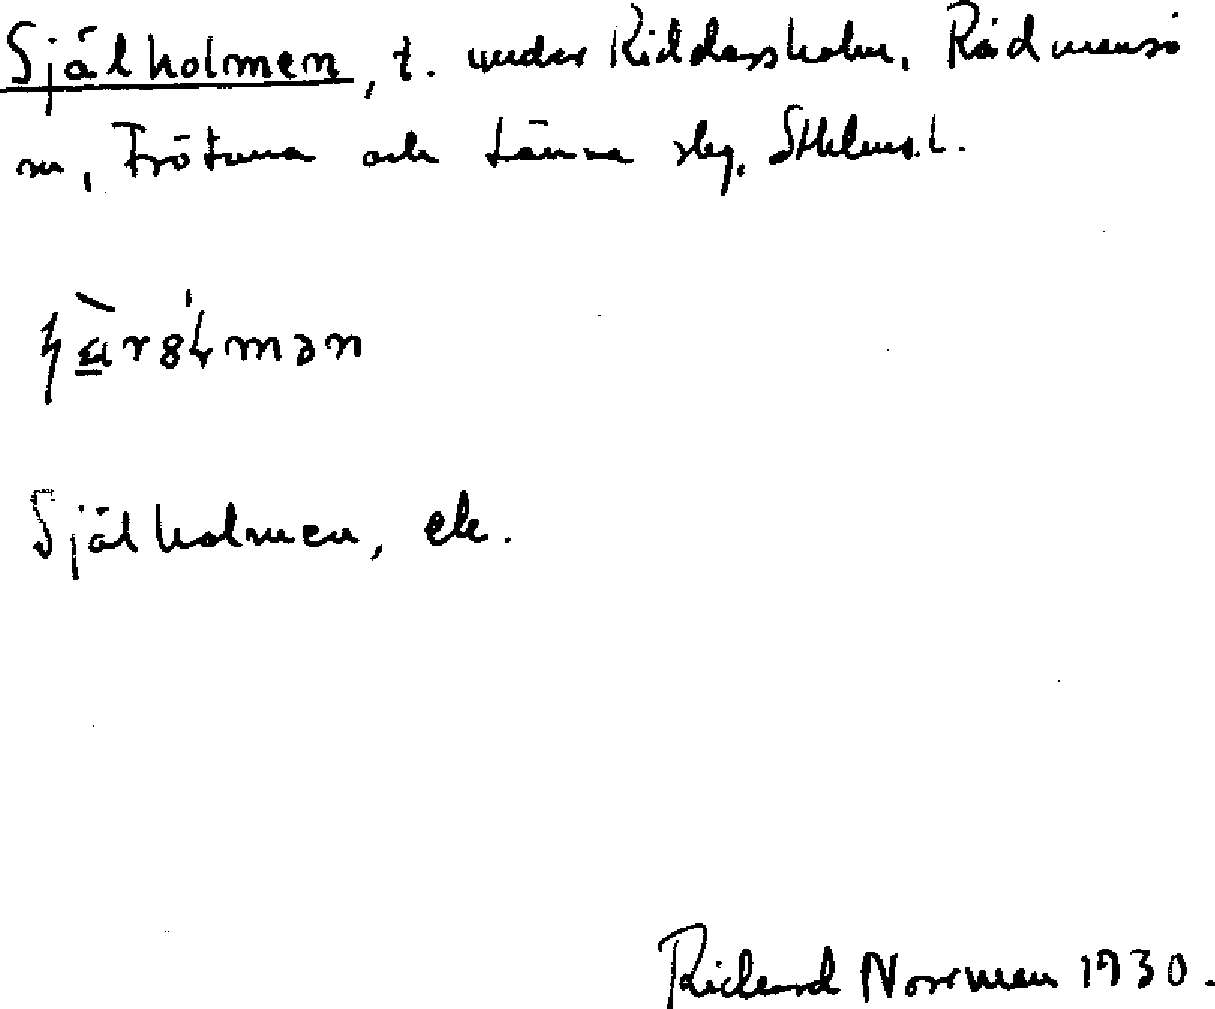 Själholmen, t. under Riddersholm, Rådmansö
sn, Frötuna och Länna skg, Sthlms.L.
Själholmen, ek.
Richard Norrman 1930.